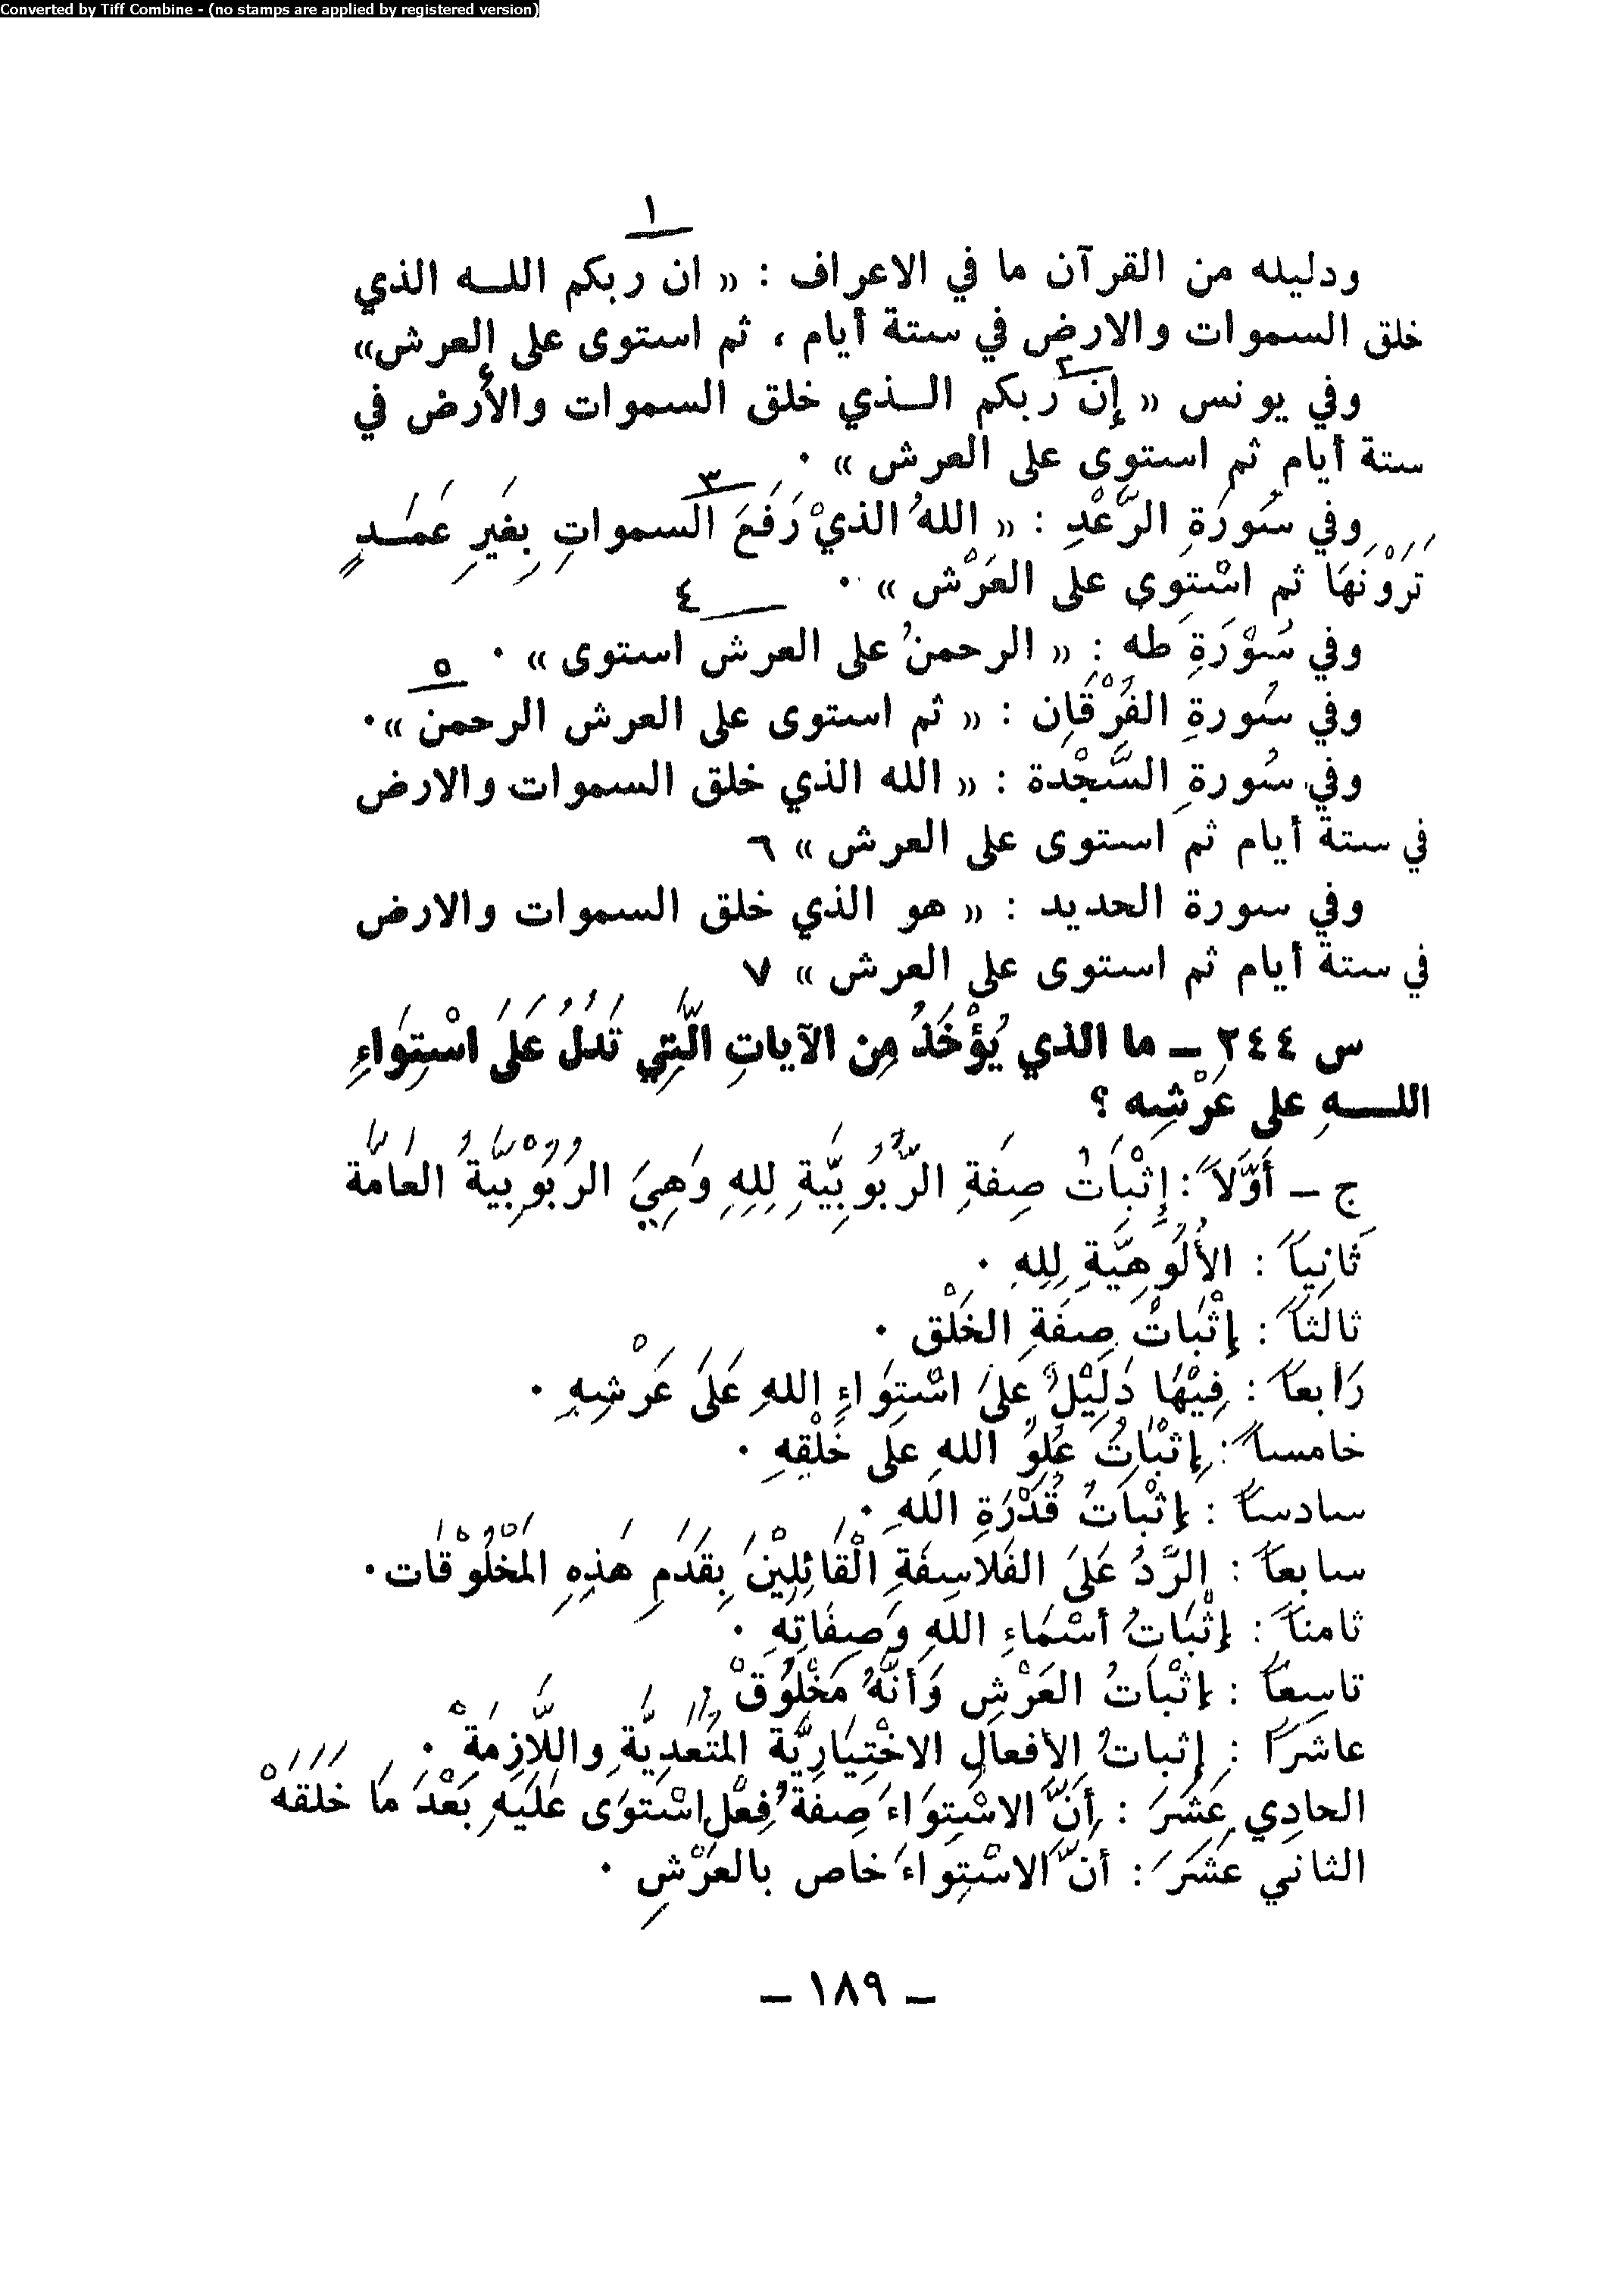 Converted by Tiff Combine - (no stamps are applied by registered version)
١
ودليله من القرآن ما في الاعراف : « ان ربكم اللـــه الذي
خلق السموات والارض في ستة أيام ، ثم استوى على العرش»
٢
وفي يونس « إن ربكم الــذي خلق السموات والأرض في
ستة أيام ثم استوى على العرش » ٠
٣
وفي سُورَةِ الرَّعْدِ : « اللهُ الذيْ رَفَعَ السمواتِ بِغَيرِ عَمَــدٍ
تَرَوْنَهَا ثم اسْتوى على العَرْش » ٠
٤
وفي سُوْرَةِ طه : « الرحمنُ على العرش استوى » ٠
٥
وفي سُورةِ الفُرْقَانِ : « ثم استوى على العرش الرحمن »٠
وفي سُورةِ السَّجْدة : « الله الذي خلق السموات والارض
في ستة أيام ثم استوى على العرش » ٦
وفي سورة الحديد : « هو الذي خلق السموات والارض
في ستة أيام ثم استوى على العرش » ٧
س ٢٤٤ – ما الذي يُؤْخَذُ مِن الآياتِ الَّتِي تَدُلُ عَلَى اسْتِوَاءِ
اللـــهِ على عَرْشِه ؟
ج – أَوَّلاً : إِثْبَاتُ صِفَةِ الرُّبُوبِيَّةِ لِلهِ وَهِيَ الرُبُوْبِيَّةُ العَامَّة
ثَانِياً : الأُلُوهِيَّةِ لِلهِ ٠
ثالثاً : إثْبَاتُ صِفَةِ الخَلْق ٠
رَابعاً : فِيْهَا دَلِيْلٌ عَلىَ اسْتِوَاءِ اللهِ عَلَى عَرْشِهِ ٠
خامساً : إثْبَاتُ عُلِوُّ اللهِ عَلَى خَلْقِهِ ٠
سادساً : إثْبَاتُ قُدْرَةِ اللهِ ٠
سابعاً : الرَّدُ عَلَى الفَلَاسِفَةِ الْقَائِلِيْنَ بِقَدَمِ هَذِهِ المَخْلُوْقَات٠
ثامناً : إثْبَاتُ أسْمَاءِ اللهِ وَصِفَاتِهِ ٠
تاسِعاً : إثْبَاتُ العَرْشِ وَأنَّهُ مَخْلُوْقْ ٠
عاشرًا : إثباتُ الأفعالِ الاخْتِيَارِيَّةِ المُتَعَدِيَّةِ واللَّازِمَةْ ٠
الحادِي عَشَرَ : أنَّ الاسْتِوَاءَ صِفَةُ فِعْلٍ اسْتَوَى عَلَيهِ بَعْدَ مَا خَلَقَهْ
الثاني عَشَرَ : أنَّ الاسْتِوَاءَ خاص بالعَرْشِ ٠
– ١٨٩ –